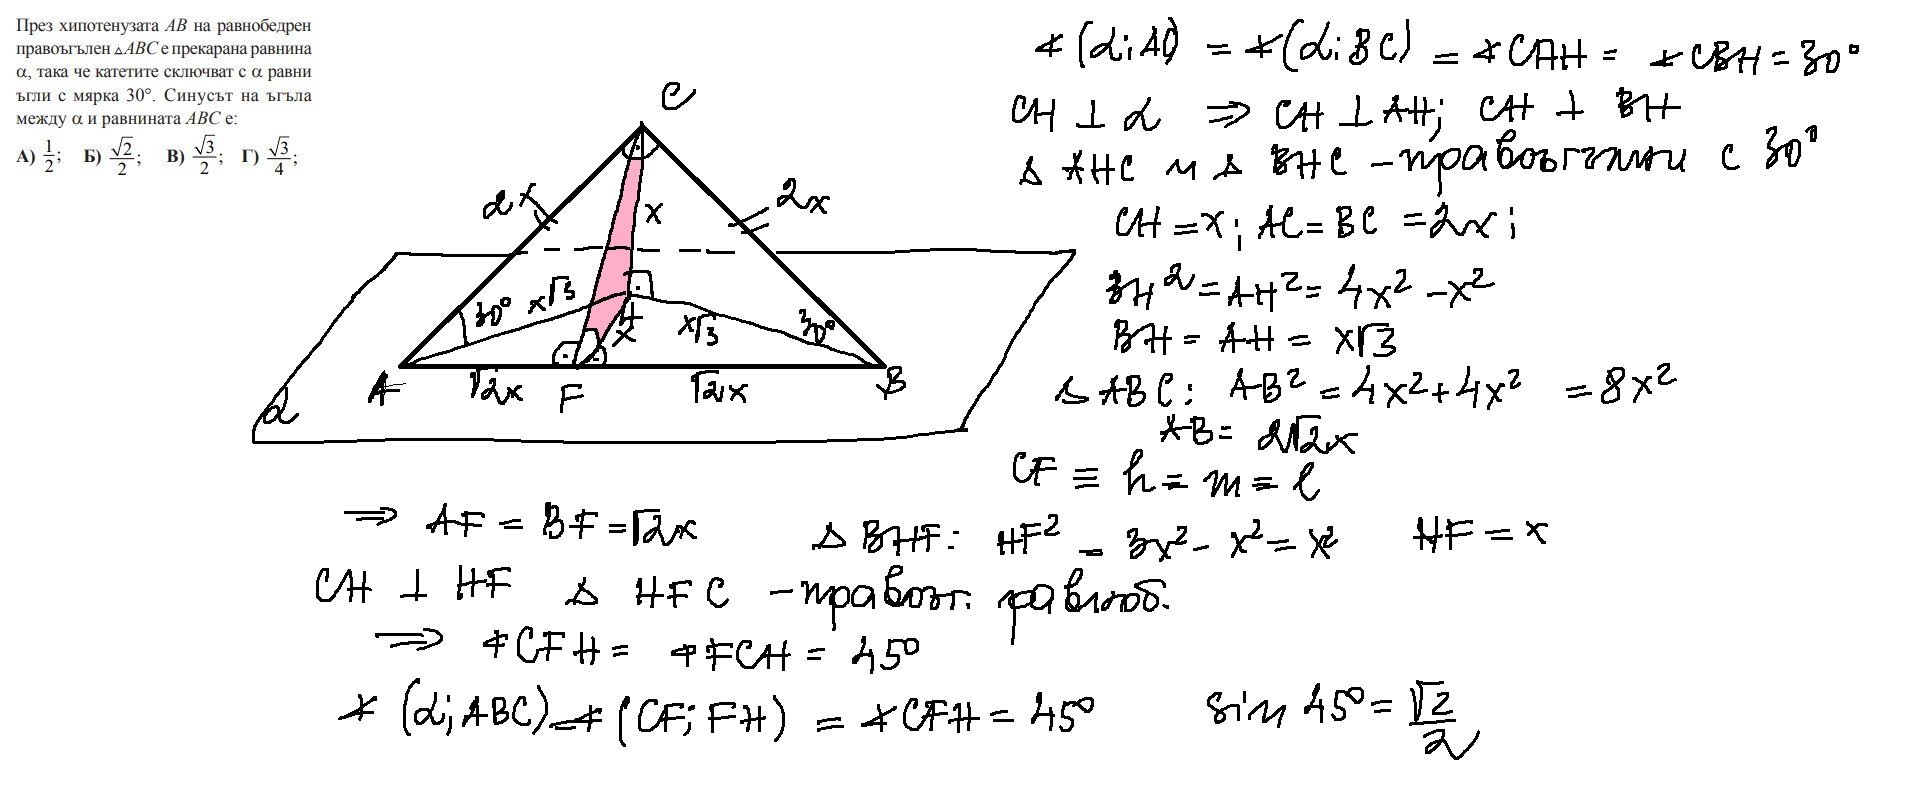 През хипотенузата AB на равнобедрен
правоъгълен △ABC е прекарана равнина
α, така че катетите сключват с α равни
ъгли с мярка 30°. Синусът на ъгъла
между α и равнината ABC е:
А) 1/2; Б) √2/2; В) √3/2; Г) √3/4;
∢(α; AC) = ∢(α; BC) = ∢CAH = ∢CBH = 30°
CH ⊥ α ⇒ CH ⊥ AH; CH ⊥ BH
△ AHC и △ BHC – правоъгълни с 30°
CH = x; AC = BC = 2x;
BH² = AH² = 4x² – x²
BH = AH = x√3
△ABC: AB² = 4x² + 4x² = 8x²
AB = 2√2x
CF ≡ h = m = l
⇒ AF = BF = √2x △BHF: HF² = 3x² – x² = x² HF = x
CH ⊥ HF △ HFC – правоъг. равноб.
⇒ ∢CFH = ∢FCH = 45°
∢(α; ABC) = ∢(CF; FH) = ∢CFH = 45° sin 45° = √2/2
C
2x
x
2x
30°
x√3
H
x
x√3
30°
A
√2x
F
√2x
B
α